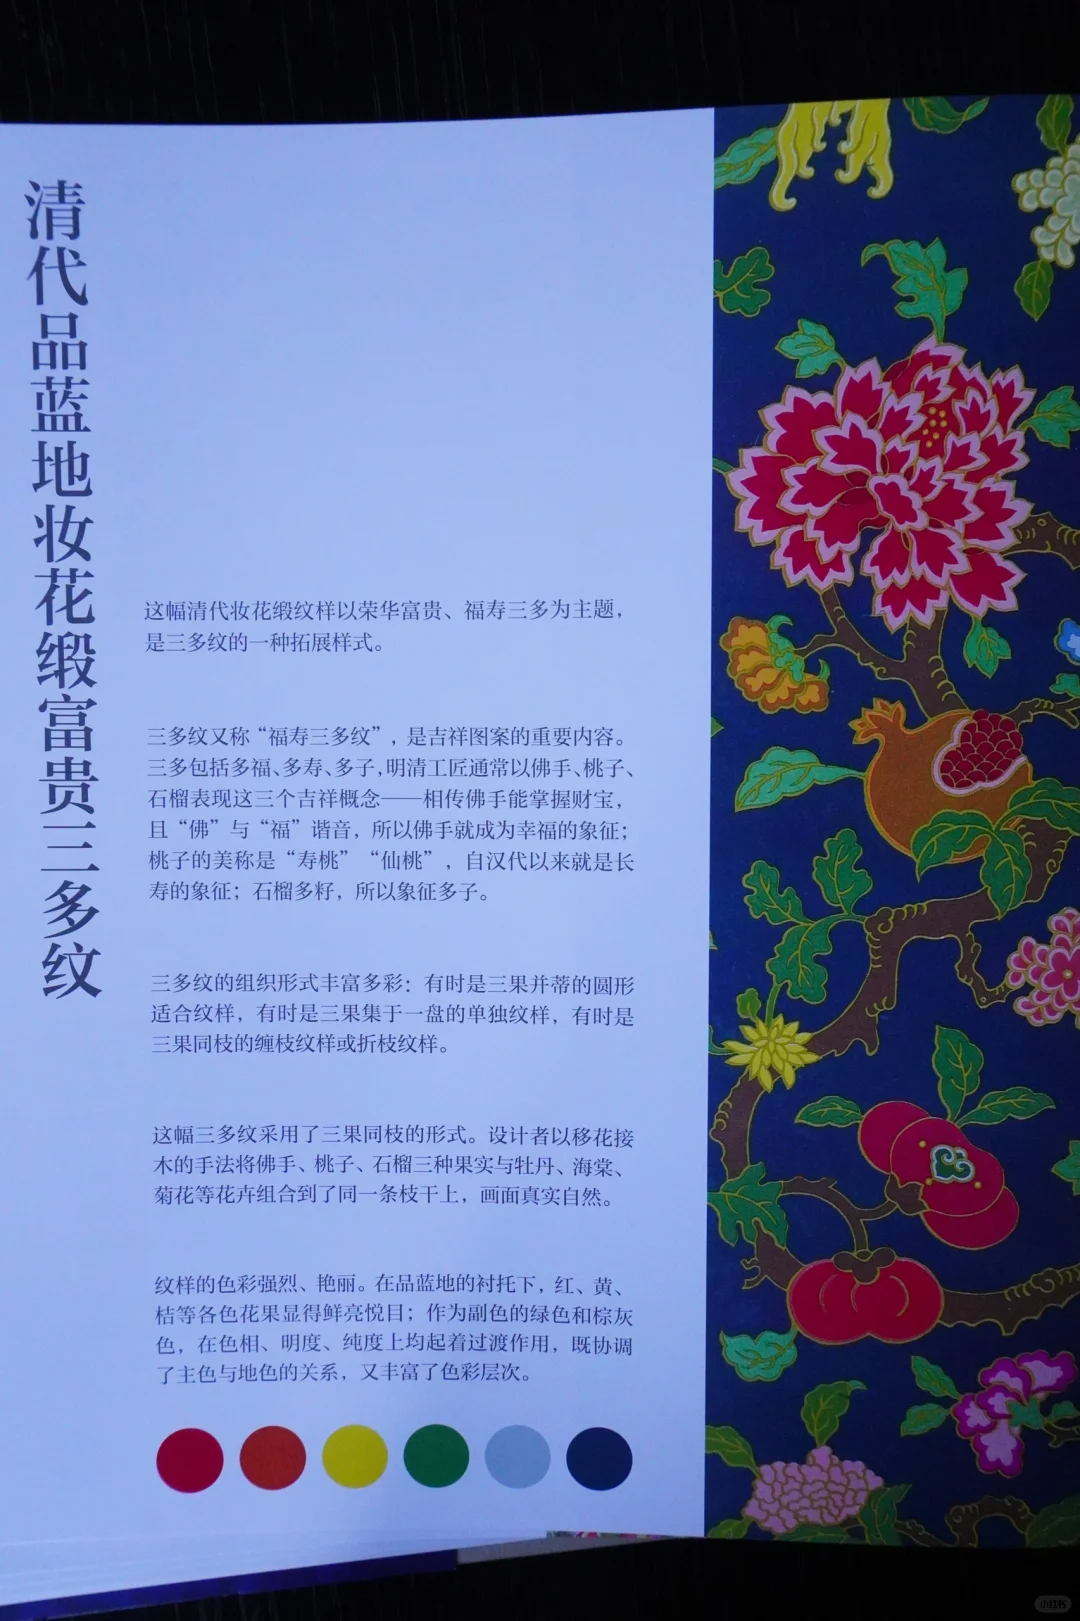 清代品蓝地妆花缎富贵三多纹
这幅清代妆花缎纹样以荣华富贵、福寿三多为主题，
是三多纹的一种拓展样式。
三多纹又称“福寿三多纹”，是吉祥图案的重要内容。
三多包括多福、多寿、多子，明清工匠通常以佛手、桃子、
石榴表现这三个吉祥概念——相传佛手能掌握财宝，
且“佛”与“福”谐音，所以佛手就成为幸福的象征；
桃子的美称是“寿桃”“仙桃”，自汉代以来就是长
寿的象征；石榴多籽，所以象征多子。
三多纹的组织形式丰富多彩：有时是三果并蒂的圆形
适合纹样，有时是三果集于一盘的单独纹样，有时是
三果同枝的缠枝纹样或折枝纹样。
这幅三多纹采用了三果同枝的形式。设计者以移花接
木的手法将佛手、桃子、石榴三种果实与牡丹、海棠、
菊花等花卉组合到了同一条枝干上，画面真实自然。
纹样的色彩强烈、艳丽。在品蓝地的衬托下，红、黄、
桔等各色花果显得鲜亮悦目；作为副色的绿色和棕灰
色，在色相、明度、纯度上均起着过渡作用，既协调
了主色与地色的关系，又丰富了色彩层次。
小红书